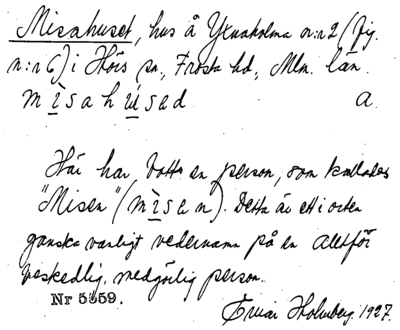 Misahuset, hus å Yxnaholma n:r 2 (fig.
n:r 6) i Hörs sn, Frosta hd, Mlm. län.
mìsahúsad a.
Här har bott en person, som kallades
"Misen" (mìsen). Detta är ett i orten
ganska vanligt vedernamn på en alltför
beskedlig, medgörlig person.
Nr 5559.
Einar Holmberg. 1927.